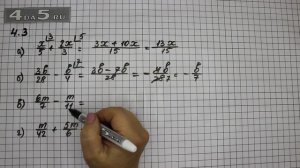 4.3
а) x/5 \3 + 2x/3 \5 = (3x + 10x)/15 = 13x/15
б) 3b/28 - b/4 \7 = (3b - 7b)/28 = - 4b/28 7 = - b/7
в) 6m/7 - m/11 =
г) m/42 + 5m/6